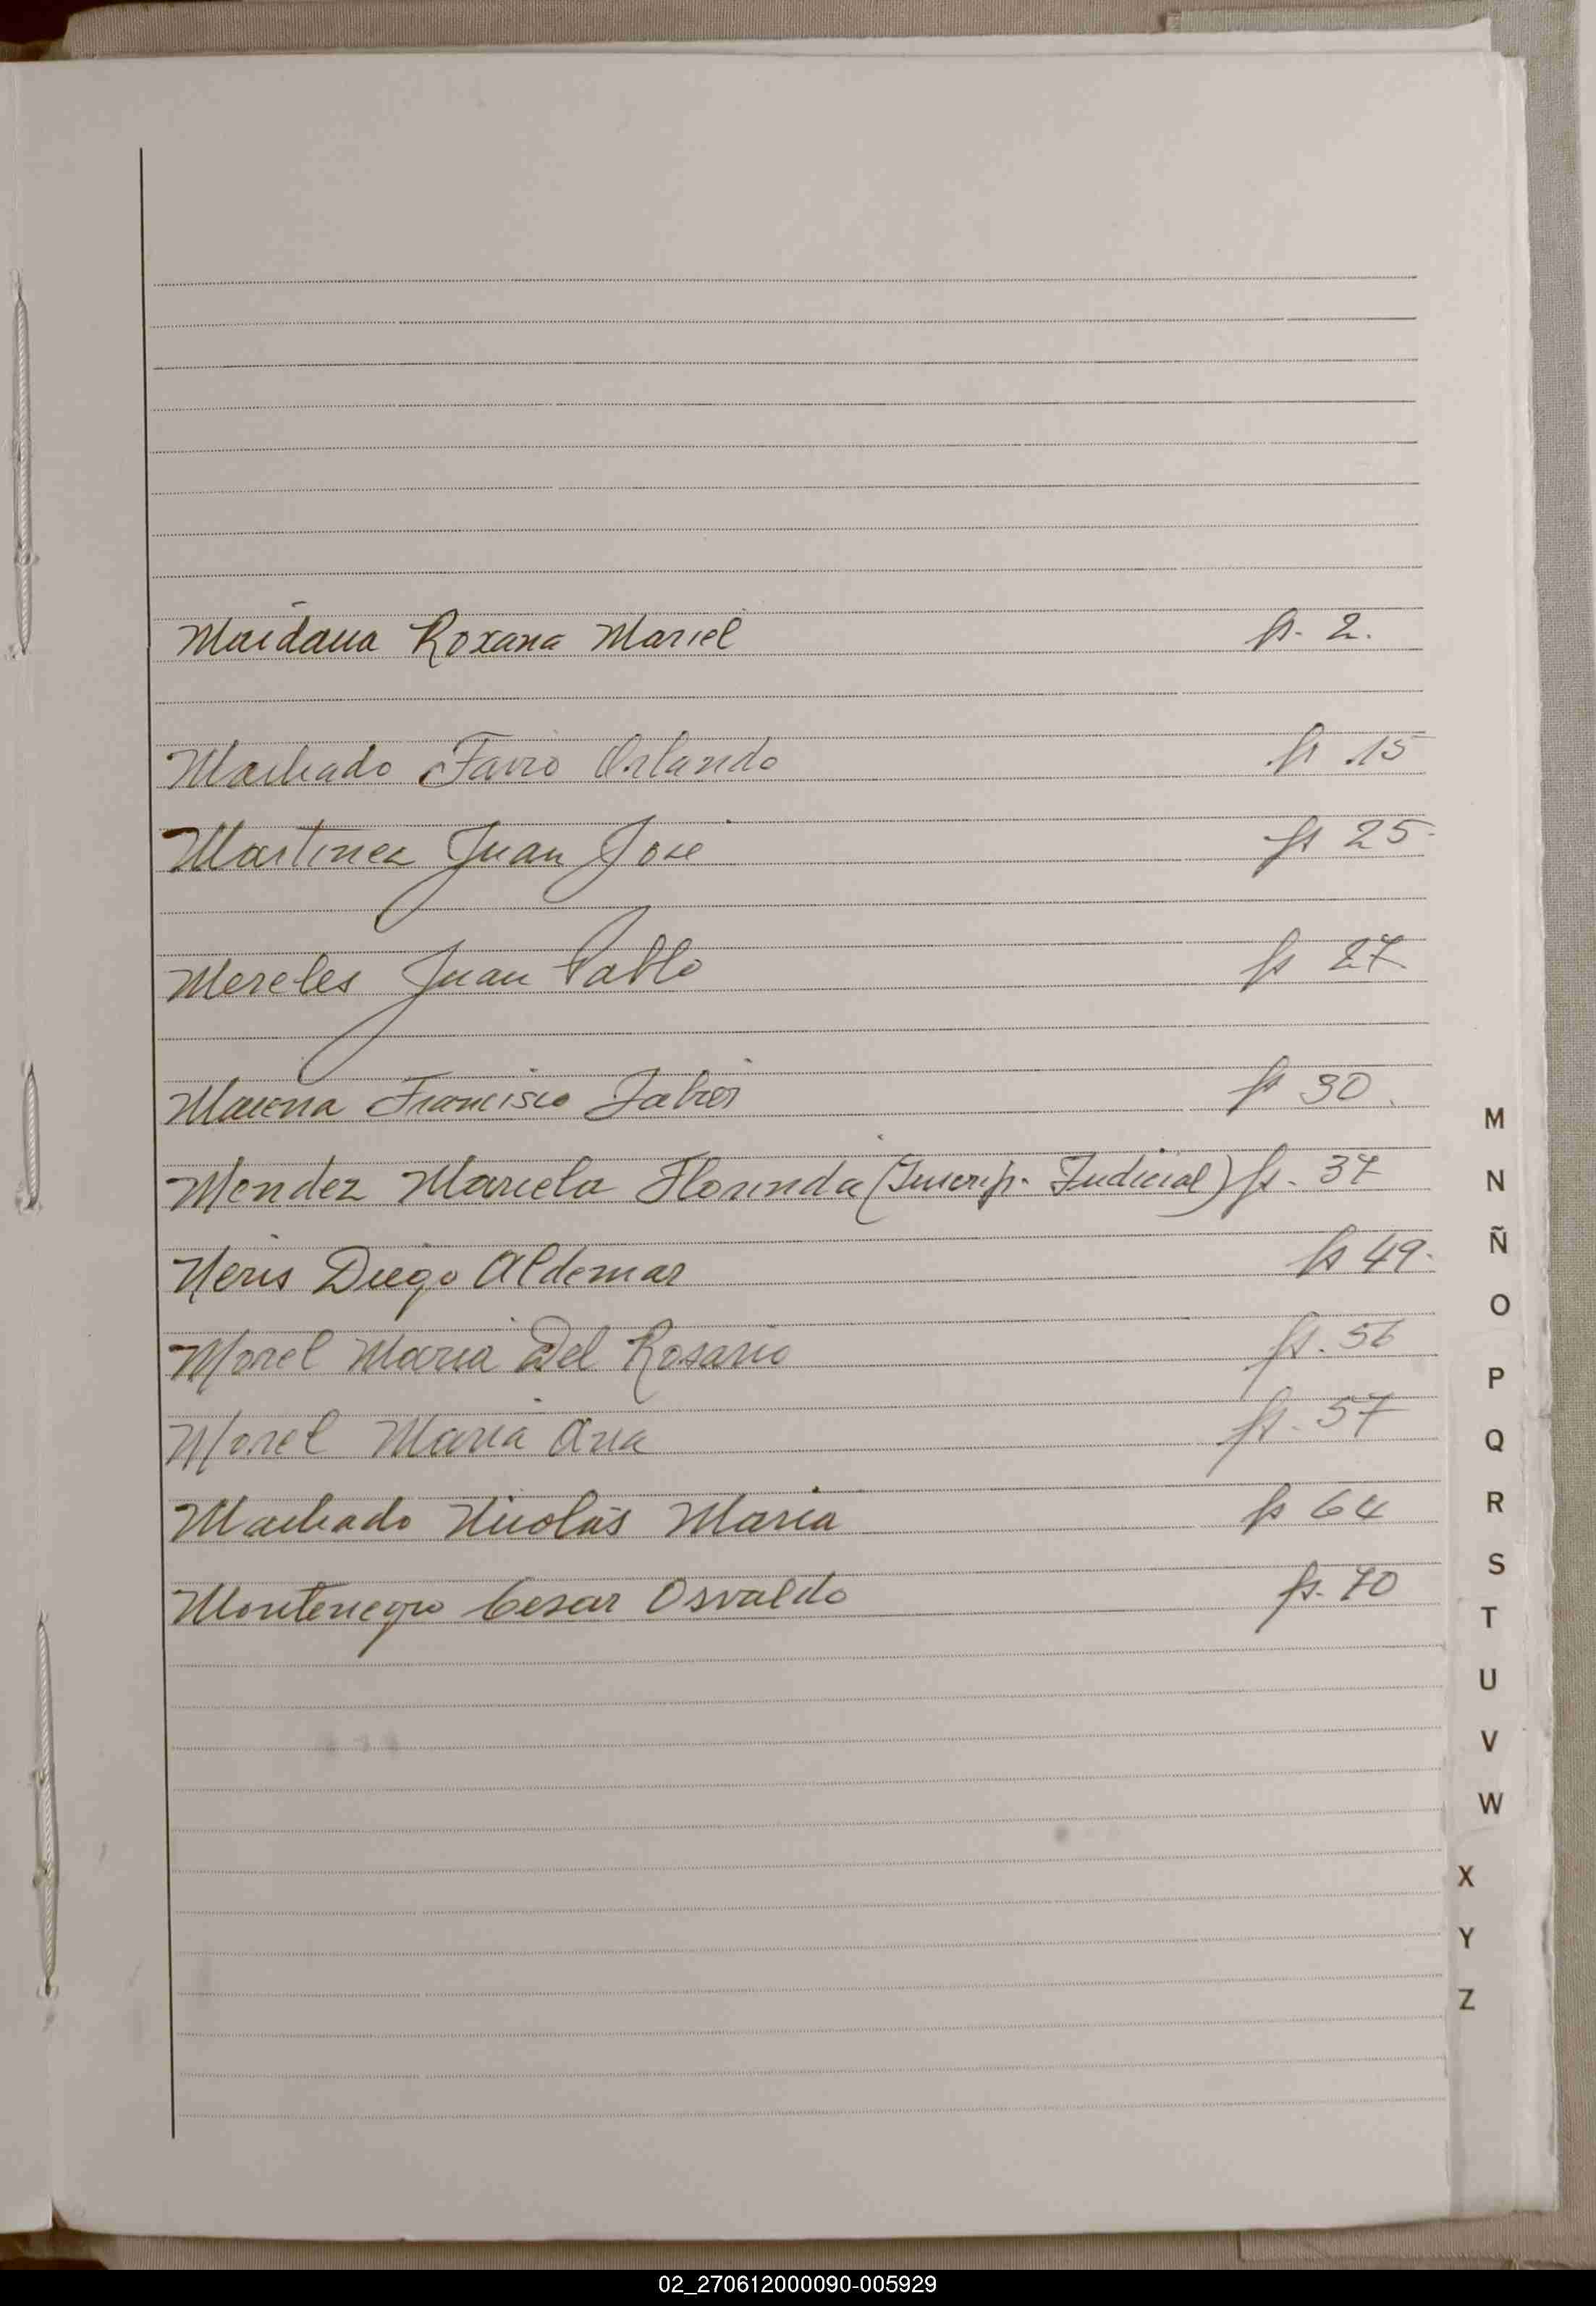 Maidana Roxana Mariel fs. 2.
Machado Favio Orlando fs 15
Martinez Juan José fs 25.
Mereles Juan Pablo fs 27
Francisco Javier fs 30.
Mendez Mariela Florinda (Inscrip. Judicial) fs. 37
Neris Diego Aldemar fs 49.
Morel Maria Del Rosario fs. 56
Morel Maria Ana fs. 57
Machado Nicolás Maria fs 64
Montenegro Cesar Osvaldo fs. 70
M
N
Ñ
O
P
Q
R
S
T
U
V
W
X
Y
Z
02_270612000090-005929